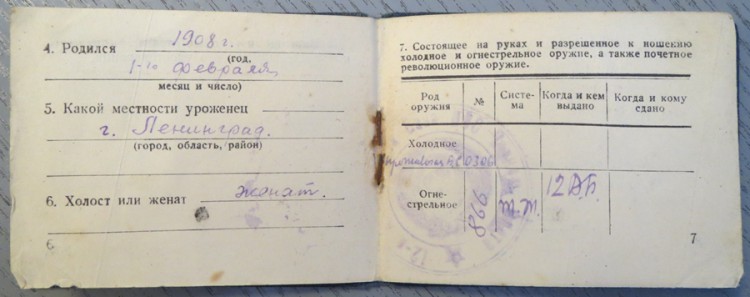 4. Родился 1908 г.
(год,
1-го февраля,
месяц и число)
5. Какой местности уроженец
г. Ленинград.
(город, область, район)
6. Холост или женат женат.
6
7. Состоящее на руках и разрешенное к ношению
холодное и огнестрельное оружие, а также почетное
революционное оружие.
Род оружия № Систе-ма Когда и кем выдано Когда и кому сдано
Холодное
0306
Огне-стрельное 866 Т.Т. 12
7